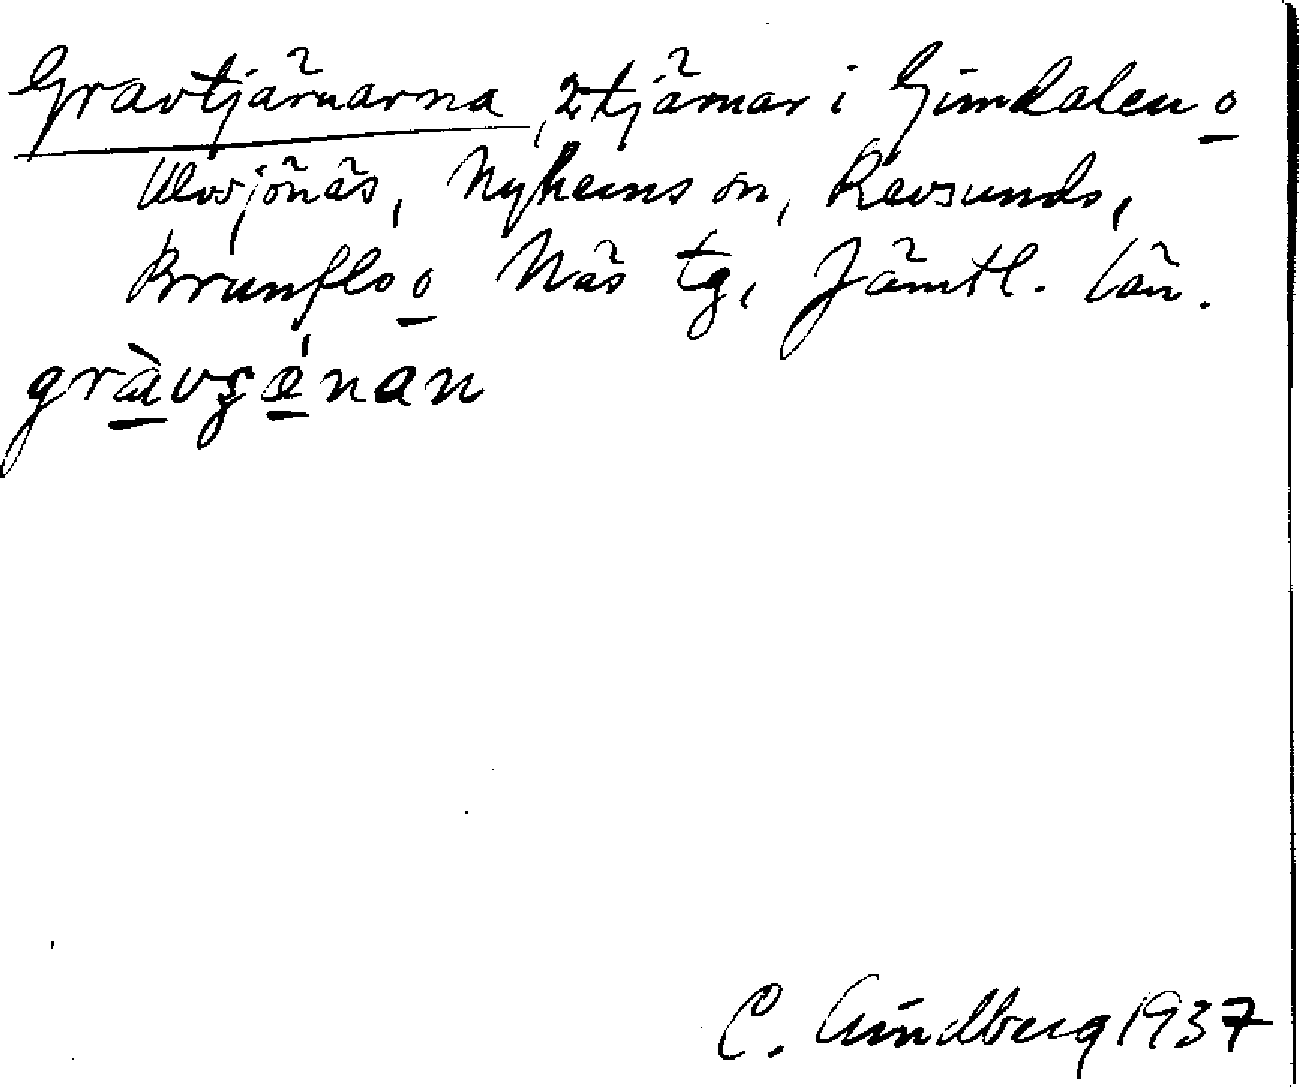 Gravtjärnarna, 2 tjärnar i Gimdalen o
Ulvsjönäs, Nyhems sn, Revsunds,
Brunflo o Näs tg, Jämtl. län.
gràvʂǽnan
C. Lindberg 1937